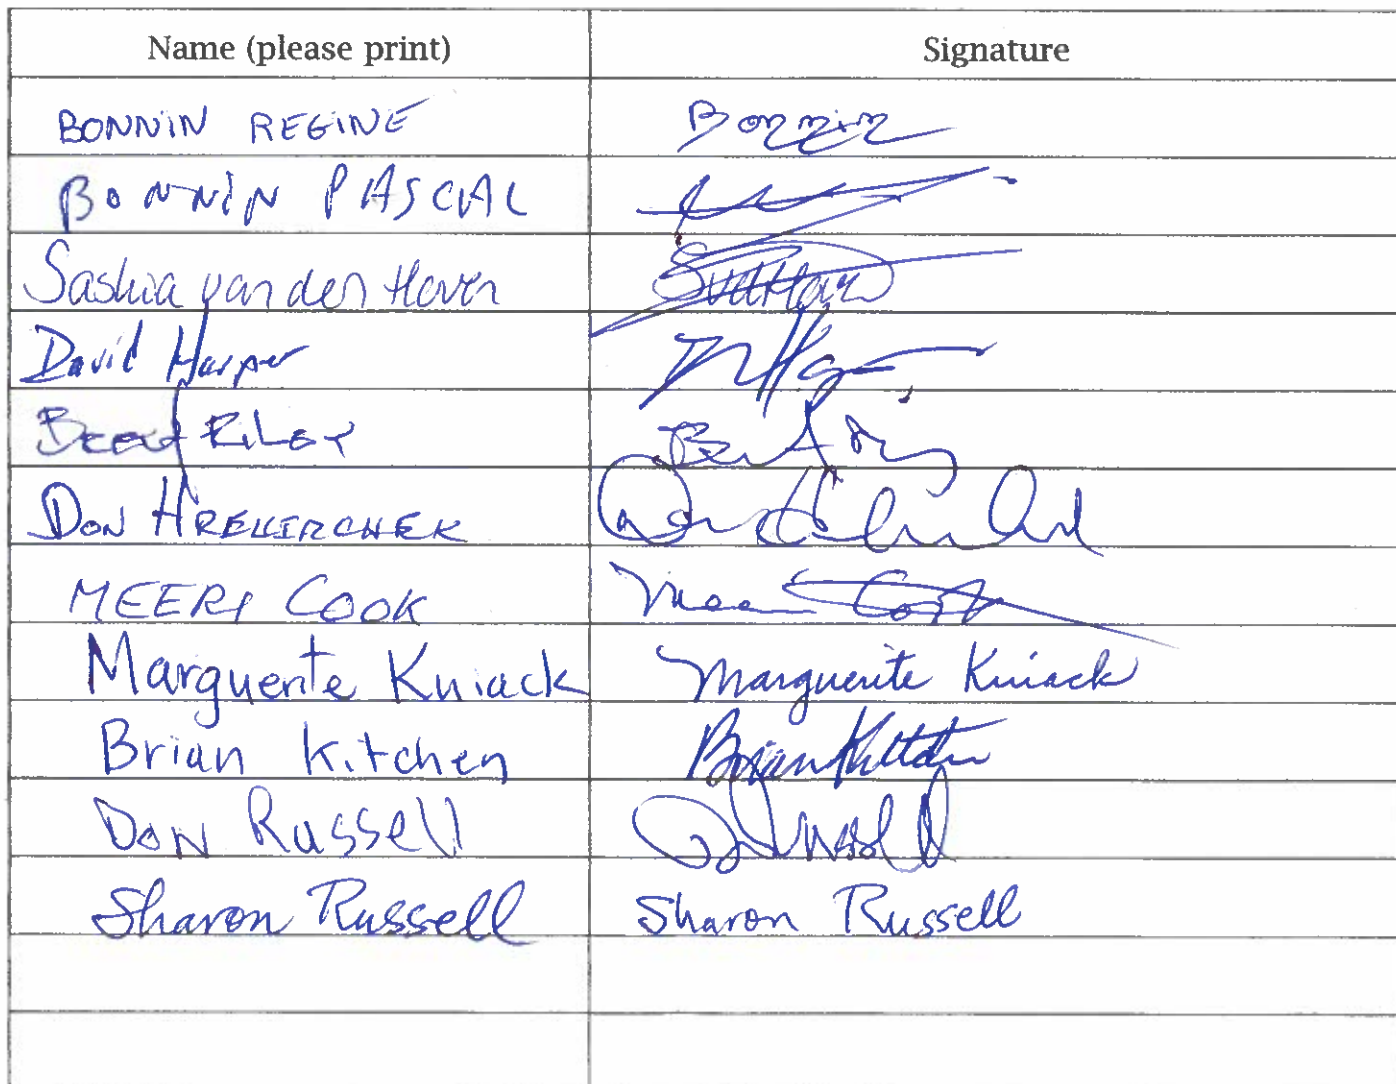 Name (please print) Signature
BONNIN REGINE Bonnin
BONNIN PASCAL
Saskia van den Hoven
David Harper
Brad Riley
DON
MEERI COOK
Marguerite Kniack Marguerite Kniack
Brian Kitchen Brian Kitchen
DON Russell
Sharon Russell Sharon Russell